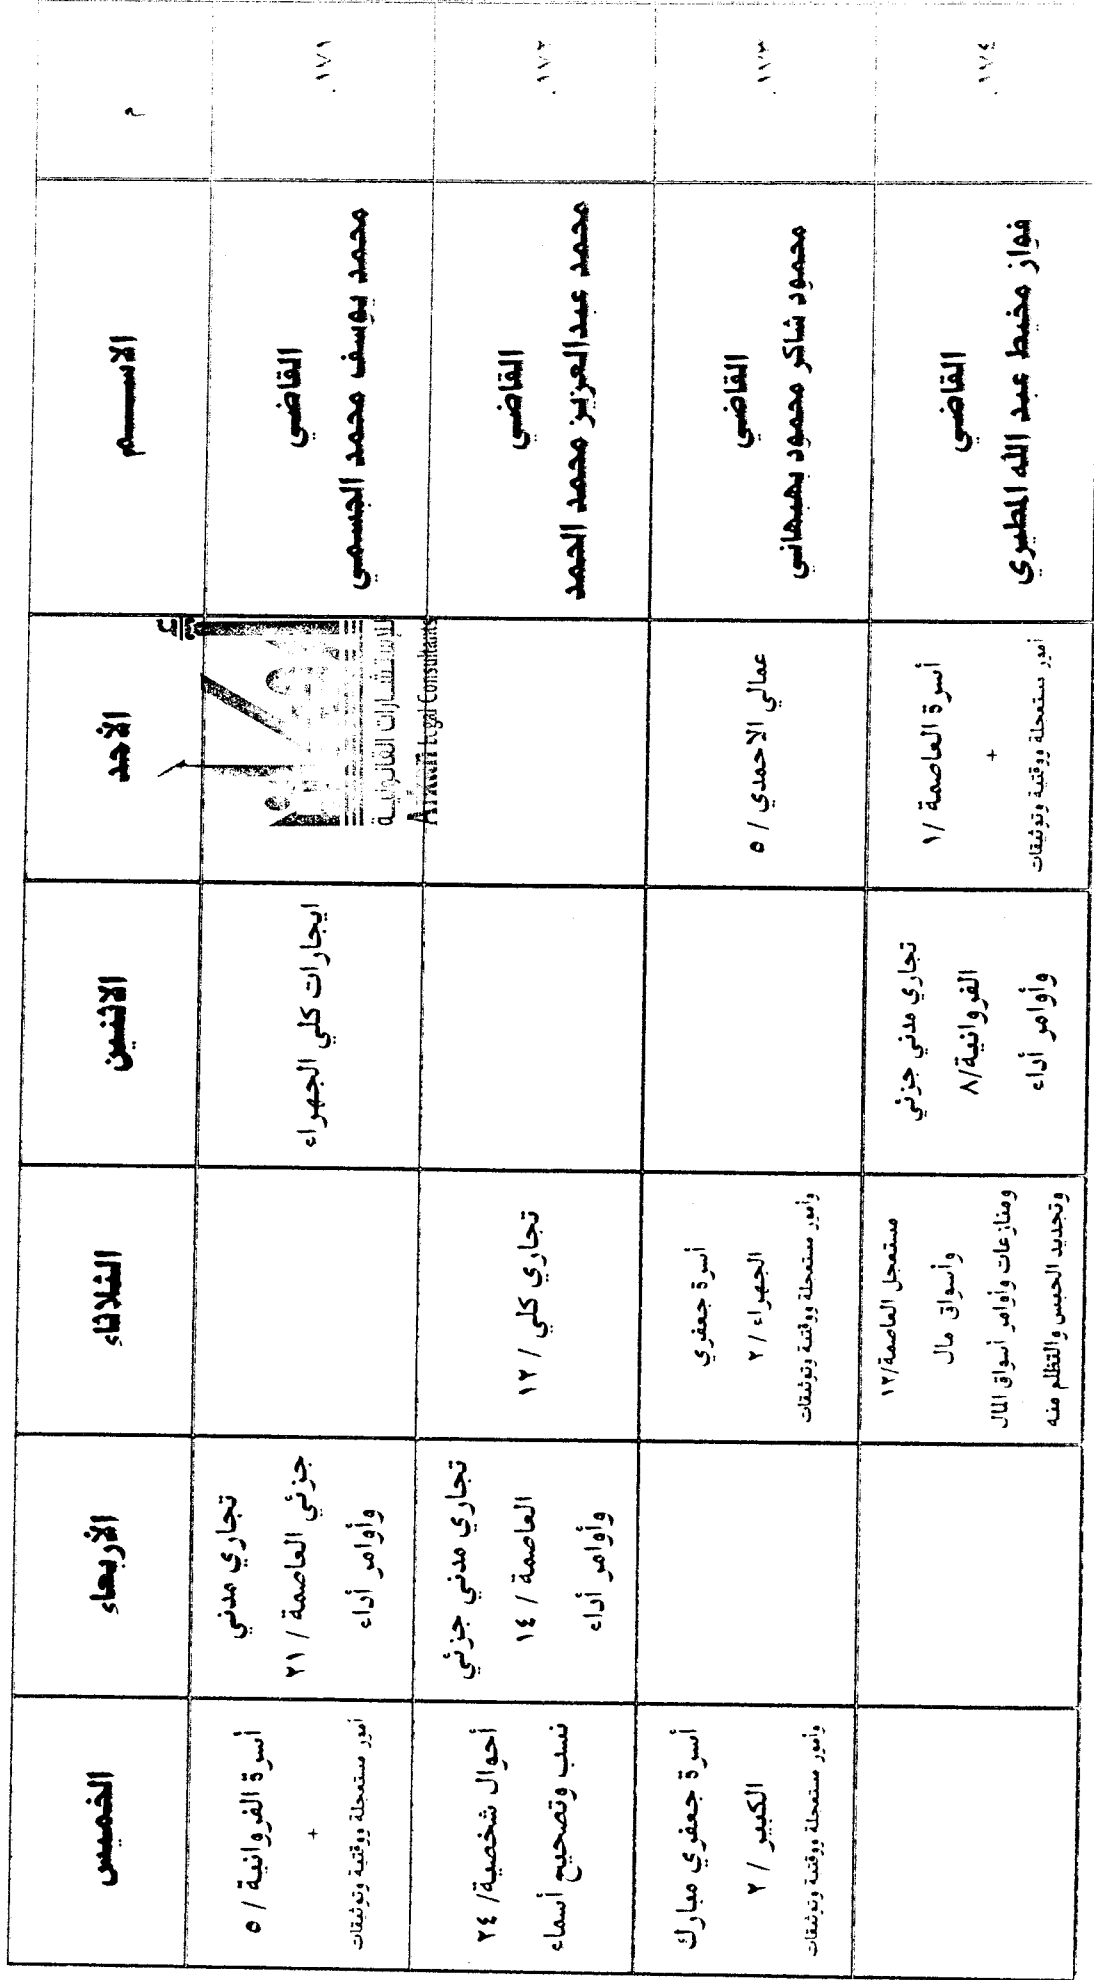 م
الاســـــم
الأحد
الاثنين
الثلاثاء
الأربعاء
الخميس
١٧١.
القاضي
محمد يوسف محمد الجسمي
للاستشارات القانونيـة
Legal Consultants
ايجارات كلي الجهراء
تجاري مدني
جزئي العاصمة / ٢١
وأوامر أداء
أسرة الفروانية / ٥
+
أمور مستعجلة ووقتية وتوثيقات
١٧٢.
القاضي
محمد عبدالعزيز محمد الحمد
تجاري كلي / ١٢
تجاري مدني جزئي
العاصمة / ١٤
وأوامر أداء
أحوال شخصية/ ٢٤
نسب وتصحيح أسماء
١٧٣.
القاضي
محمود شاكر محمود بهبهاني
عمالي الاحمدي / ٥
أسرة جعفري
الجهراء / ٢
وأمور مستعجلة ووقتية وتوثيقات
أسرة جعفري مبارك
الكبير / ٢
وأمور مستعجلة ووقتية وتوثيقات
١٧٤.
القاضي
فواز مخيط عبد الله المطيري
أسرة العاصمة /١
+
أمور مستعجلة ووقتية وتوثيقات
تجاري مدني جزئي
الفروانية/٨
وأوامر أداء
مستعجل العاصمة/١٢
وأسواق مال
ومنازعات وأوامر أسواق المال
وتجديد الحبس والتظلم منه